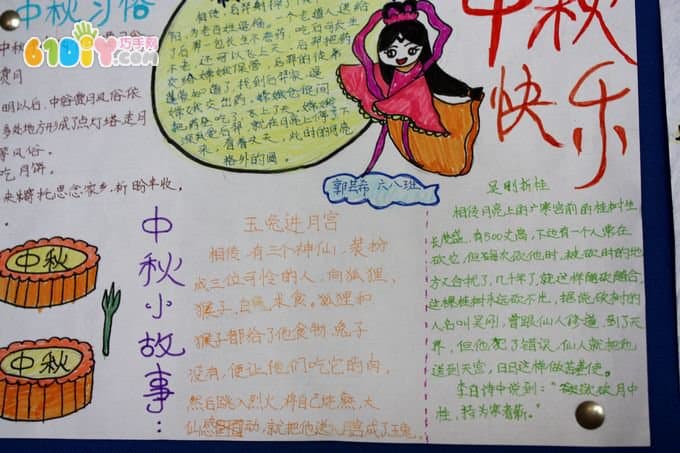 中秋习俗
61DIY巧手网
赏月
明以后,中秋赏月风俗依
多处地方形成了点灯塔走月
等风俗。
吃月饼。
来寄托思念家乡,祈盼丰收。
中秋
中秋
中秋小故事:
相传,后羿射下了
阳,为老百姓造福,一个老道人送给
了后羿一包长生不老药,吃后可长生
不老,还可以飞上天,后羿把药
交给嫦娥保管,后羿的徒弟
蓬蒙知道了,找到后羿家逼
嫦娥交出药,嫦娥急忙间
把药吃了,飞上了天,嫦娥
来,看着天,此时的月亮
格外的圆
郭芸希 六八班
中秋
快乐
玉兔进月宫
相传,有三个神仙,装扮
成三位可怜的人,向狐狸,
猴子,白兔求食。狐狸和
猴子都给了他食物,兔子
没有,便让他们吃它的肉,
然后跳入烈火,将自己烧熟,大
仙感动,就把他送入月宫成了玉兔。
吴刚折桂
相传月亮上的广寒宫前的桂树生
长茂盛,有500丈高,下边有一个人常在
砍它,但每次砍他时,被砍时的地
方又合死了,几千年了,就这样随砍随合
这棵桂树永远砍不出,据说砍树的
人名叫吴刚,曾跟仙人修道,到了天
界,但他犯了错误,仙人就把他
送到天宫,日日这样做苦差使。
李白诗中说到:“欲砍月中
桂,持为寒者薪。”